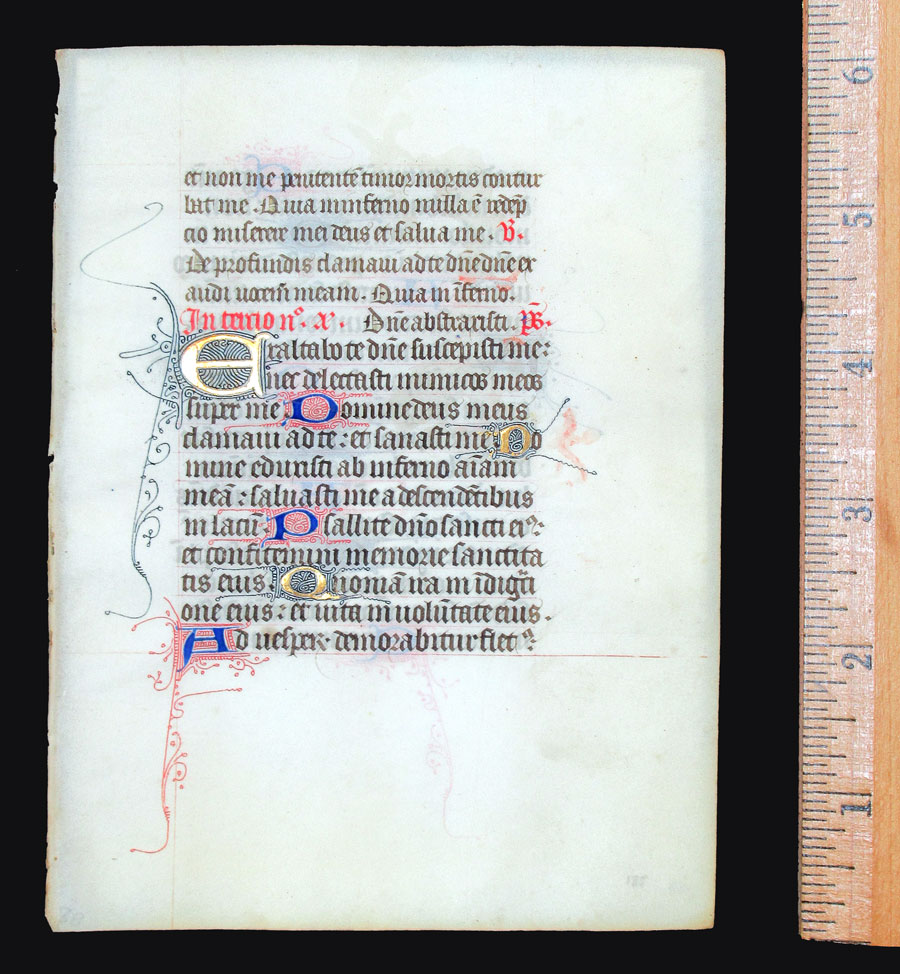 et non me penitente͂ timor mortis contur
bat me. Quia in inferno nulla e͂ redep͂
cio miserere mei deus et salua me. V.
De profundis clamaui ad te dn͂e dn͂e ex
audi uocem meam. Quia in i͂ferno.
In tercio n°. a͂. Dn͂e abstraxisti. p͂s.
Exaltabo te dn͂e suscepisti me:
nec delectasti inimicos meos
super me Domine deus meus
clamaui ad te: et sanasti me Do
mine eduxisti ab inferno aia͂m
mea͂: saluasti me a descende͂tibus
in lacu͂. Psallite dn͂o sancti eiꝰ:
et confitemini memorie sanctita
tis eius. Quonia͂ ira in i͂dig͂ti
one eius: et uita in uolu͂tate eius.
Ad uesper͂ demorabitur flet ꝰ:
6
5
4
3
2
1